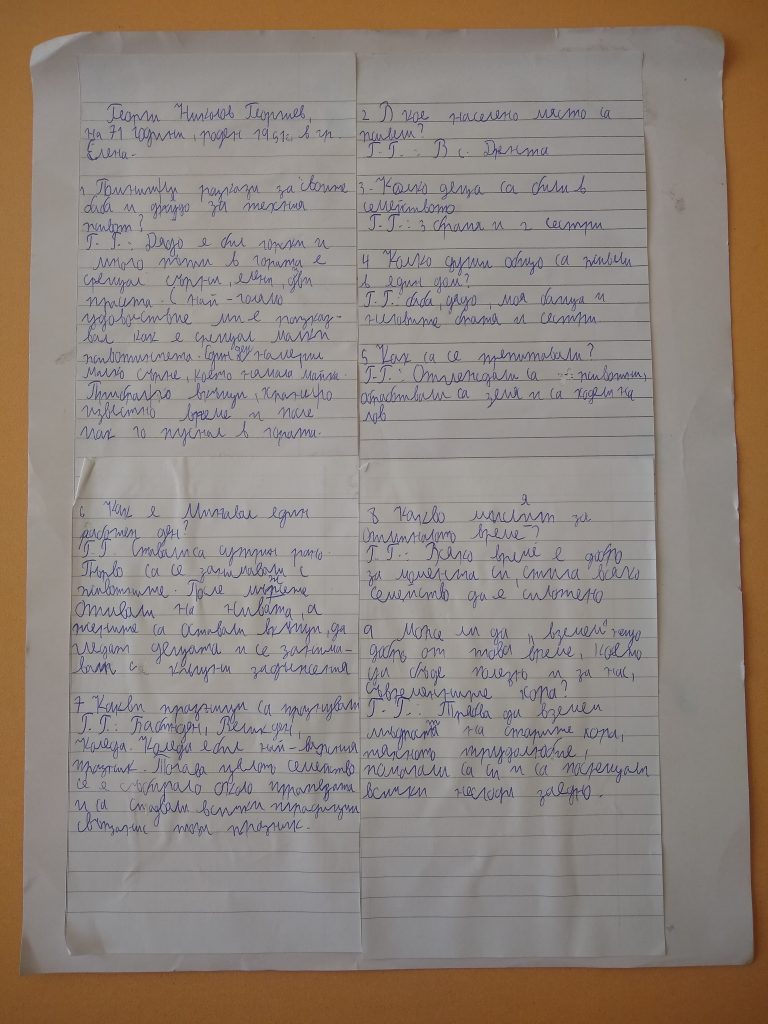 Георги Николов Георгиев,
на 71 години, роден 1951г. в гр.
Елена.
1 Помниш ли разкази за своите
баба и дядо за техния
живот?
Г. Г.: Дядо е бил горски и
много пъти в гората е
срещал сърни, елени, диви
прасета. С най-голямо
удоволствие ми е разказ-
вал как е срещал малки
животинчета. Един ден намерил
малко сърне, което нямало майка.
Прибрал го вкъщи, хранил го
известно време и после
пак го пуснал в гората.
2 В кое населено място са
живели?
Г. Г.: В с. Дрента
3. Колко деца са били в
семейството
Г. Г.: 3 братя и 2 сестри
4 Колко души общо са живели
в един дом?
Г. Г.: баба, дядо, моя баща и
неговите братя и сестри.
5 Как са се препитавали?
Г. Г.: Отглеждали са животни,
обработвали са земя и са ходели на
лов
6 Как е минавал един
работен ден?
Г. Г. Ставали са сутрин рано.
Първо са се занимавали с
животните. После мъжете
отивали на нивата, а
жените са оставали вкъщи, да
гледат децата и се занима-
вали с къщни задължения
7. Какви празници са празнували
Г. Г.: Бабинден, Великден,
Коледа. Коледа е бил най-важния
празник. Тогава цялото семейство
се е събирало около трапезата
и са спазвали всички традиции
свързани с този празник.
8 Какво мислит я за
отминалото време?
Г. Г.: Всяко време е добро
за момента си, стига всяко
семейство да е сплотено
9 Може ли да "вземем" нещо
добро от това време, което
да бъде полезно и за нас,
съвременните хора?
Г. Г.: Трябва да вземем
мъдростта на старите хора,
тяхното трудолюбие,
помагали са си и са посрещали
всички несгоди заедно.